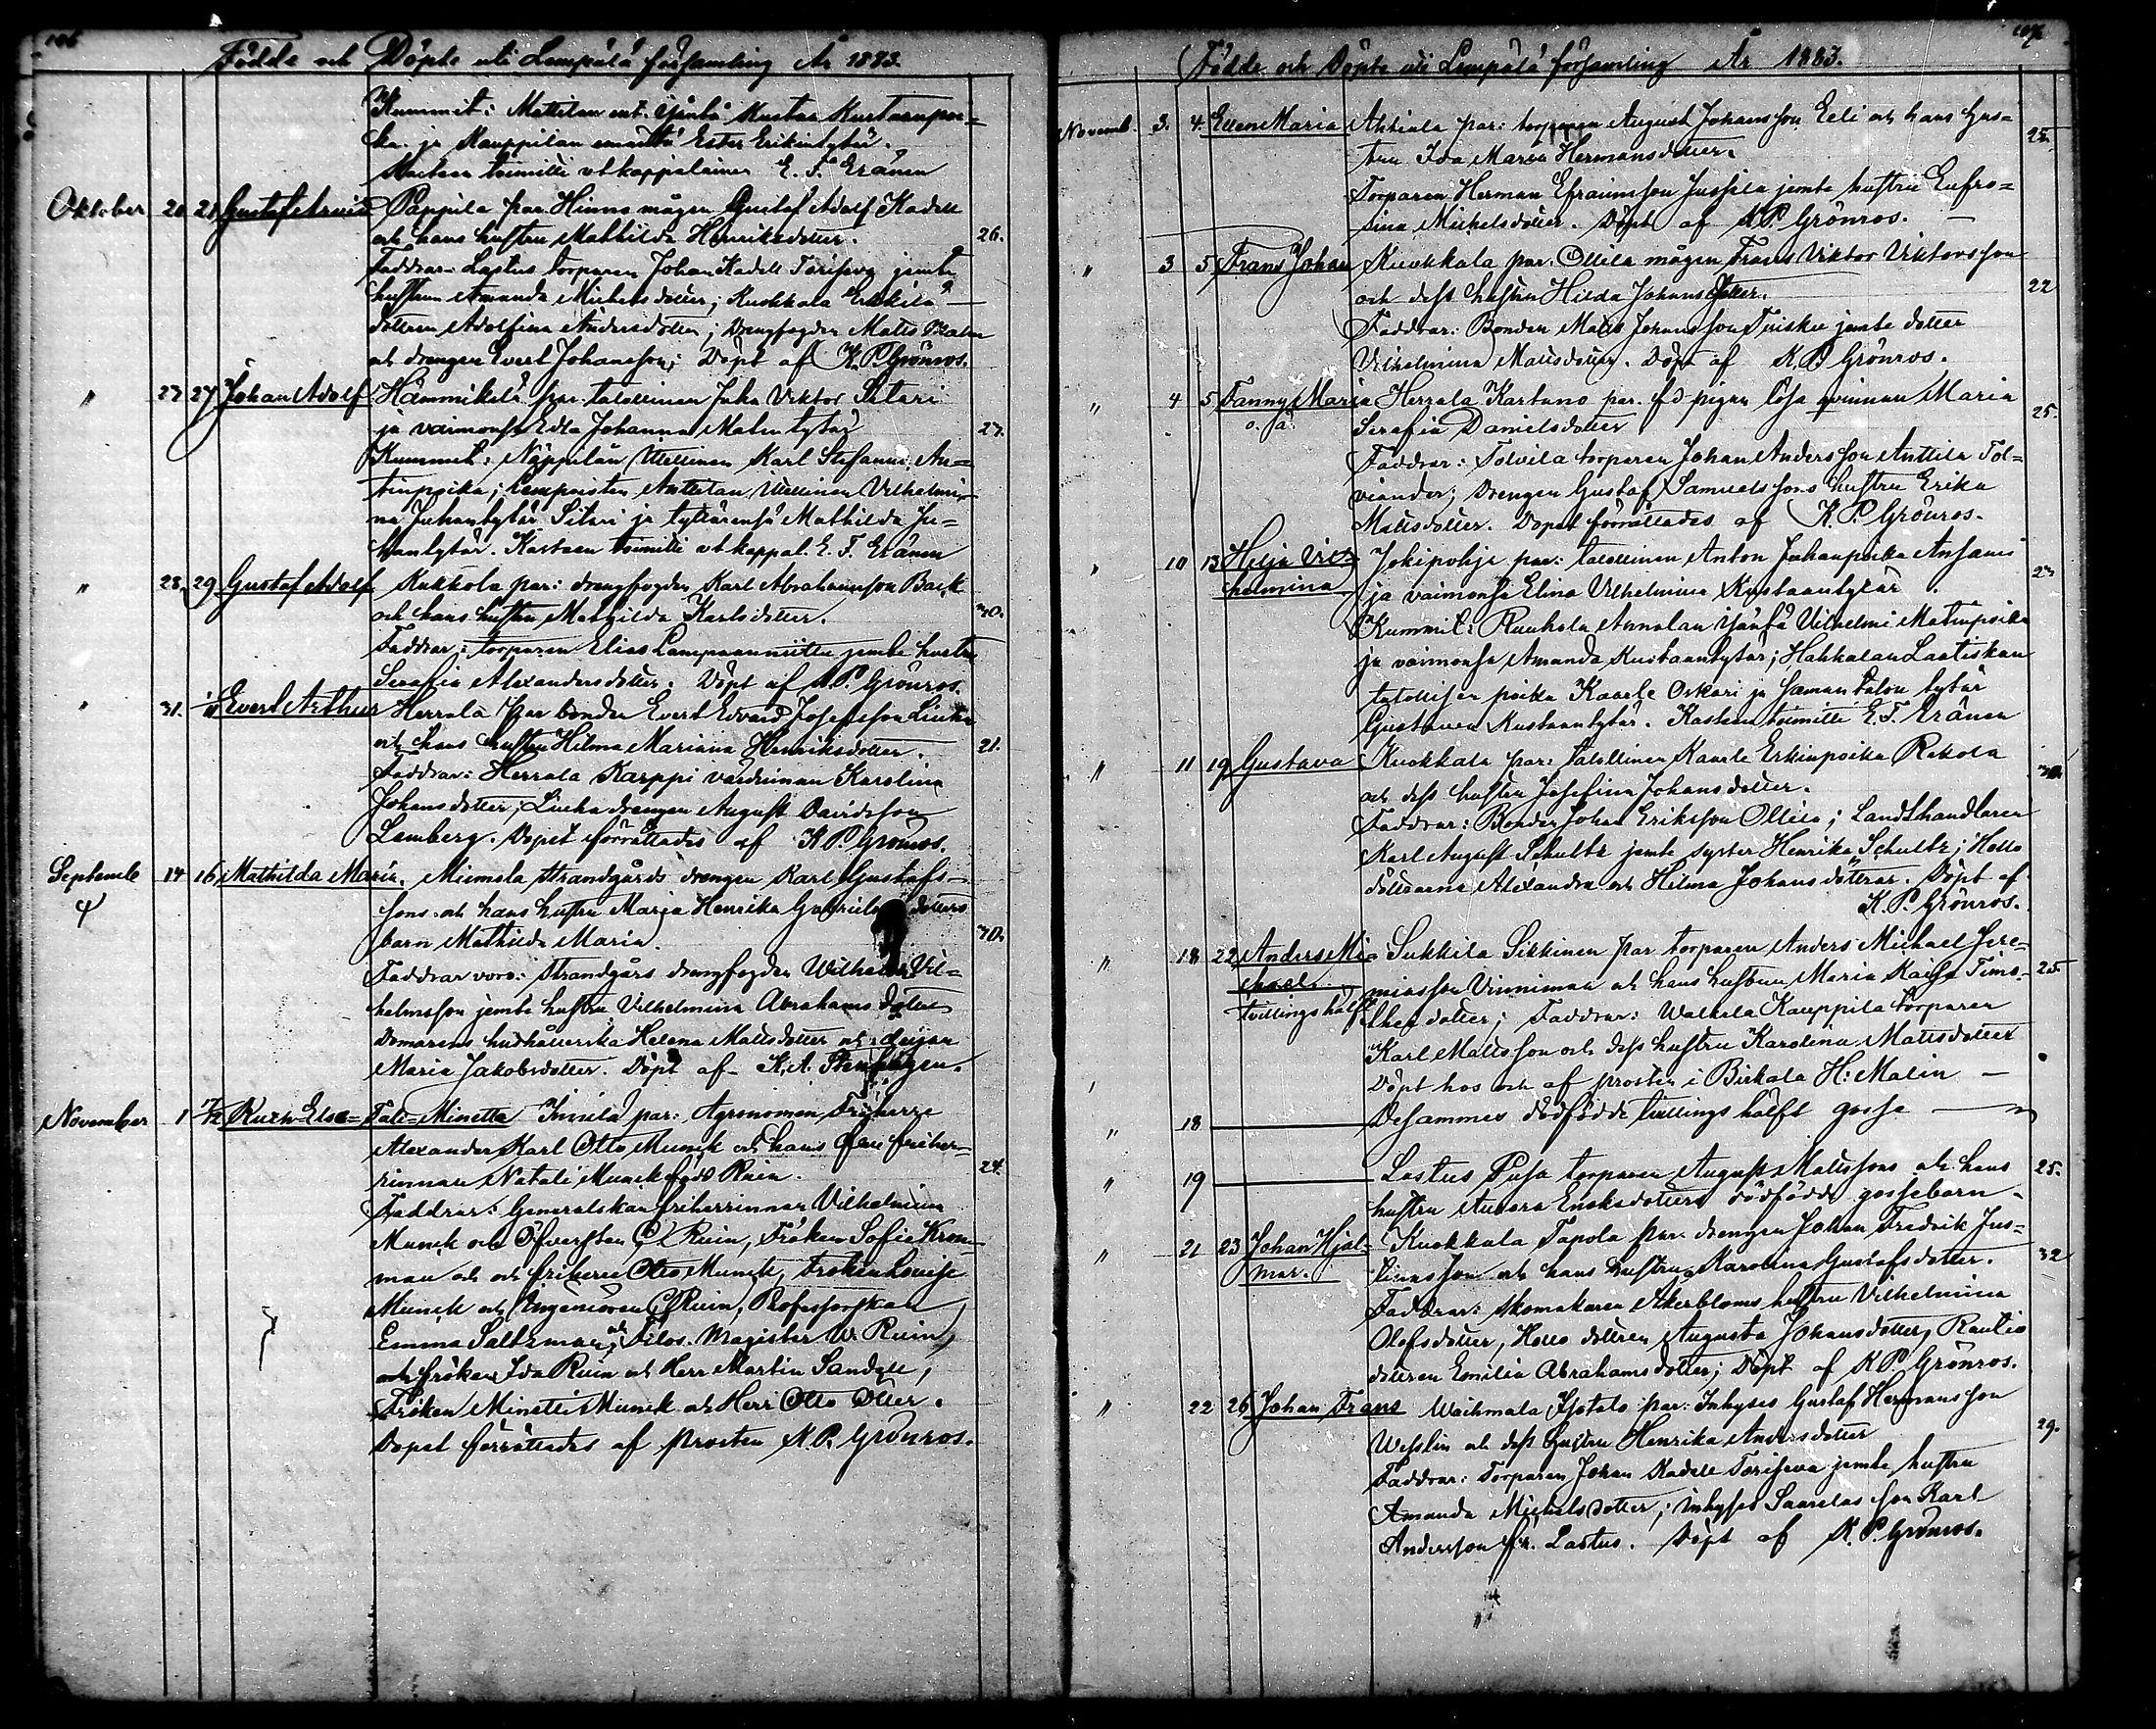 106
Födde och Döpte uti Lempälä församling År 1883.
Kummit: Mattilan ent. isäntä Kustaa Kustaanpoi=
ka ja Kauppilan emäntä Ester Erikintytär.
Kasteen toimitti vt kappalainen E. F. Eränen
Oktober 20 21 Gustaf Arvid Pappila par. Hinno mågen Gustaf Adolf Kadell
och hans hustru Mathilda Henriksdotter. 26.
Faddrar: Lastus torparen Johan Kadell Törisevä jemte
hustrun Amanda Michelsdotter; Kuokkala Erkkilä
dottren Adolfina Andersdotter; Drengfogden Matts Palm
och drengen Evert Johansson; Döpt af K. P. Grönros.
" 23 27 Johan Adolf Hämmikelä par. talollinen Juha Viktor Sitari
ja vaimonsa Edla Johanna Matin tytär 27.
Kummit: Näppilän itsellinen Karl Stefanus An=
tinpoika; Lempoisten Anttilan itsellinen Vilhelmi=
na Juhantytär Sitari ja tyttärensä Mathilda Ju=
hantytär. Kasteen toimitti vt kappal. E. F. Eränen
" 28. 29 Gustaf Adolf Kukkola par: drengfogden Karl Abrahamsson Back
och hans hustru Mathilda Karlsdotter. 30.
Faddrar: torparen Elias Lampaanniittu jemte hustru
Serafia Alexandersdotter. Döpt af K. P. Grönros.
" 31. Evert Arthur Herrala par bonden Evert Edvard Josefsson Liuha
och hans hustru Hilma Mariana Henriksdotter. 21.
Faddrar: Herrala Karppi värdinnan Karolina
Johansdotter; Liuha drengen August Davidsson
Lemberg. Dopet förrättades af K. P. Grönros.
Septemb 14 16 Mathilda Maria. Miemola Strandgårds drengen Karl Gustafs-
sons och hans hustru Maria Henrika Gabriels dotters
barn Mathilda Maria. 30.
Faddrar voro: Strandgårs drengfogden Wilhelm Vil=
helmsson jemte hustru Vilhelmina Abrahamsdotter
Domarens hushållerska Helena Mattsdotter och pigan
Maria Jakobsdotter. Döpt af K. A. Stenhagen.
November 1 Ruth Else=Tali=Minette Innilä par: Agronomen Friherre
Alexander Karl Otto Munck och hans fru friher=
rinnan Natali Munck född Ruin. 24.
Faddrar: Generalskan friherrinnan Vilhelmina
Munck och Öfversten C. Ruin, Fröken Sofie Krom=
man och friherre Otto Munck, Fröken Lovise
Munck och Ingeniören C. Ruin, Professorskan
Emma Saltzman, och Filos. Magister W. Ruin,
och fröken Ida Ruin och Herr Martin Sandell,
Fröken Minette Munck och Herr Otto Otter.
Dopet förrättades af prosten K. P. Grönros.
107
Födde och Döpte uti Lempälä församling År 1883.
Novemb. 3. 4. Ellen Maria Ahtiala par: torparen August Johansson Eeli och hans hus=
tru Ida Maria Hermansdotter. 25.
Torparen Herman Efraimsson Jussila jemte hustru Eufro=
sina Michelsdotter. Döpt af K. P. Grönros.
" 3 5 Frans Johan Kuokkala par. Ollila mågen Frans Viktor Viktorsson
och dess hustru Hilda Johansdotter. 22
Faddrar: Bonden Matts Johansson Tuisku jemte dotter
Vilhelmina Mattsdotter. Döpt af K. P. Grönros.
" 4 5 Fanny Maria Herrala Kartano par. fd pigan lösa qvinnan Maria
o. ä. Serafia Danielsdotter 25.
Faddrar: Tolvila torparen Johan Andersson Anttila Tol=
viander; Drengen Gustaf Samuelssons hustru Erika
Mattsdotter. Dopet förrättades af K. P. Grönros.
" 10 13 Hilja Vil= Jokipohja par: talollinen Anton Juhanpoika Ansami
helmina ja vaimonsa Elina Vilhelmina Kustaantytär. 23
Kummit: Ruuhola Annolan isäntä Vilhelmi Matinpoika
ja vaimonsa Amanda Kustaantytär; Hahkalan Laatiskan
talollisen poika Kaarle Oskari ja saman talon tytär
Gustaava Kustaantytär. Kasteen toimitti E. F. Eränen
" 11 19 Gustava Kuokkala par: talollinen Kaarle Erkinpoika Rekola
och dess hustru Josefina Johansdotter. 30.
Faddrar: Bonden Johan Eriksson Ollila; Landthandlaren
Karl August Schultz jemte syster Henrika Schultz; Hollo
döttrarne Alexandra och Hilma Johansdöttrar. Döpt af
K. P. Grönros.
" 18 22 Anders Mi= Sukkila Sikkinen par torparen Anders Michael Jere=
chael. miasson Vinniman och hans hustru Maria Kaisa Timo- 25
tvillingshälft theidotter; Faddrar: Walkila Kauppila torparen
Karl Mattsson och dess hustru Karolina Mattsdotter
Döpt hos och af prosten i Birkala H: Malin —
" 18 Desammes dödfödde tvillings hälft gosse —
" 19 Lastus Pusa torparen August Mattssons och hans 25.
hustru Aurora Enoksdotters dödfödde gossebarn.
" 21 23 Johan Hjal= Kuokkala Tapola par. drengen Johan Fredrik Jus=
mar. tinusson och hans hustru Karolina Gustafsdotter. 32
Faddrar: Skomakaren Åkerbloms hustru Vilhelmina
Olofsdotter, Hollo dottren Augusta Johansdotter, Rautio
dottren Emilia Abrahamsdotter; Döpt af K. P. Grönros.
" 22 26 Johan Frans Waihmala Isotalo par: Inhyses Gustaf Hermansson
Wesslin och dess hustru Henrika Andersdotter 29.
Faddrar: Torparen Johan Kadell Törisevä jemte hustru
Amanda Michelsdotter; inhyses Saarelas son Karl
Andersson fr. Lastus. Döpt af K. P. Grönros.